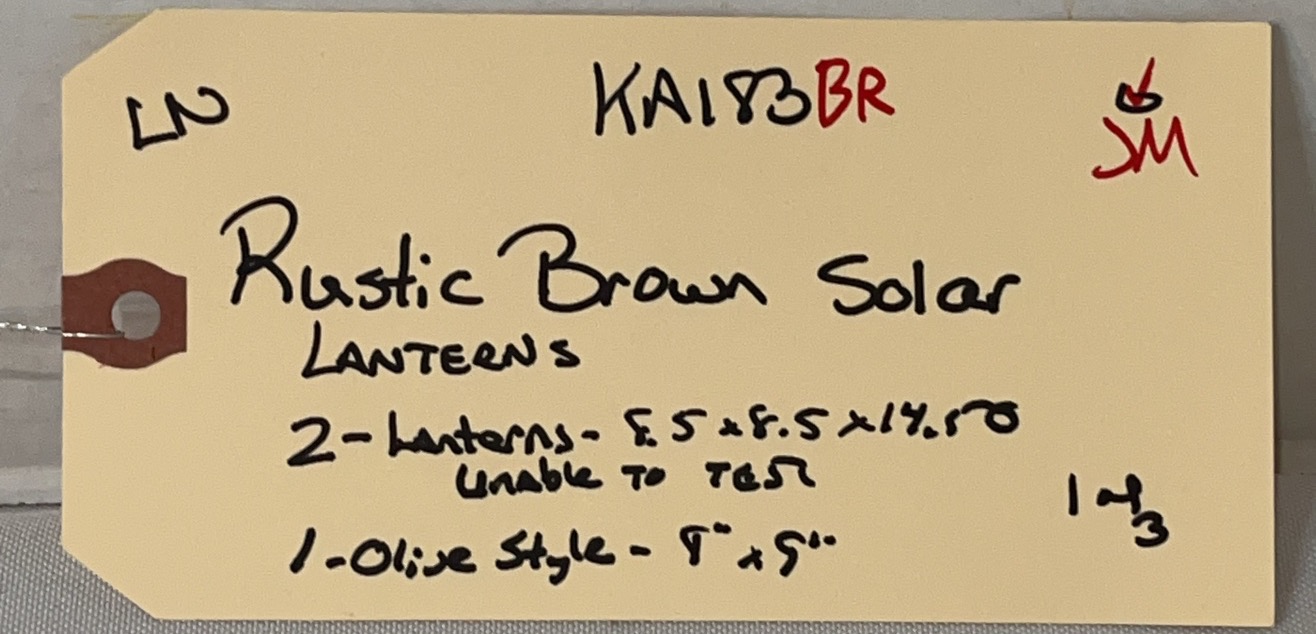 LN
KA183BR
JM
Rustic Brown Solar
LANTERNS
2-Lanterns- 8.5 x 8.5 x 14.50
Unable TO TEST
1 of 3
1-Olive Style - 8" x 9"